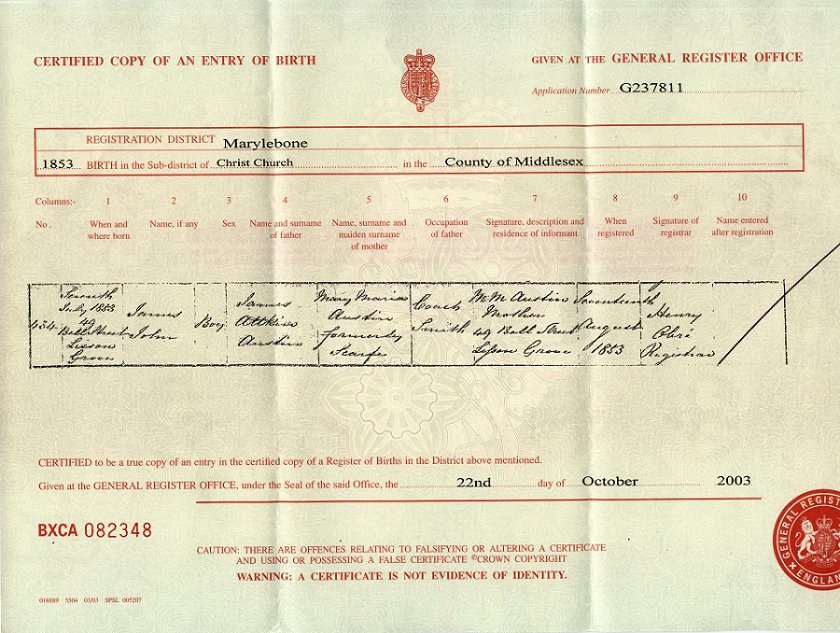 CERTIFIED COPY OF AN ENTRY OF BIRTH
GIVEN AT THE GENERAL REGISTER OFFICE
Application Number G237811
REGISTRATION DISTRICT Marylebone
1853 BIRTH in the Sub-district of Christ Church in the County of Middlesex
Columns:- 1 2 3 4 5 6 7 8 9 10
No. When and where born Name, if any Sex Name and surname of father Name, surname and maiden surname of mother Occupation of father Signature, description and residence of informant When registered Signature of registrar Name entered after registration
434
Seventh
July 1853
49
Bell Street
Lisson
Grove
James
John
Boy
James
Attkins
Austin
Mary Maria
Austin
formerly
Scarfe
Coach
Smith
M M Austin
Mother
49 Bell Street
Lisson Grove
Seventeenth
August
1853
Henry
Obré
Registrar
CERTIFIED to be a true copy of an entry in the certified copy of a Register of Births in the District above mentioned.
Given at the GENERAL REGISTER OFFICE, under the Seal of the said Office, the 22nd day of October 2003
BXCA 082348
CAUTION: THERE ARE OFFENCES RELATING TO FALSIFYING OR ALTERING A CERTIFICATE
AND USING OR POSSESSING A FALSE CERTIFICATE ©CROWN COPYRIGHT
WARNING: A CERTIFICATE IS NOT EVIDENCE OF IDENTITY.
GENERAL REGIST
ENGLAN
018889 5504 03/03 SPSL 005207